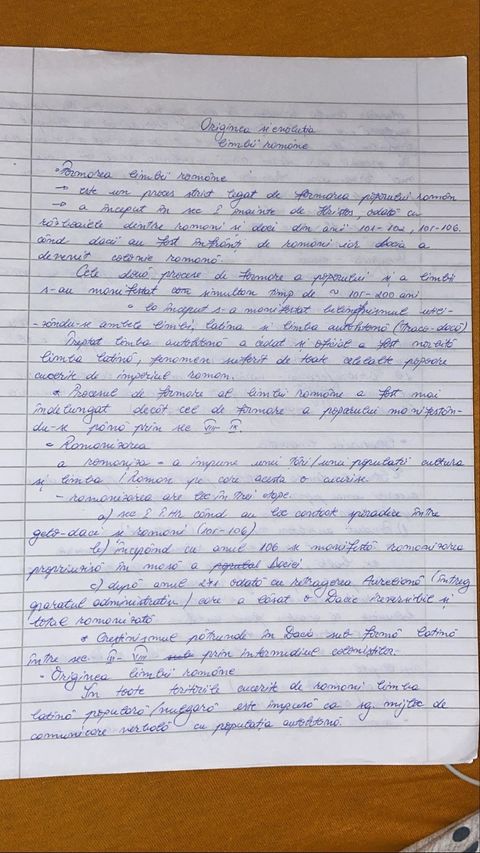 Originea si evolutia
limbii romane
• Formarea limbii române
→ este un proces strict legat de formarea poporului român
→ a început în sec I înainte de Hristos, odată cu
războaiele dintre romani si daci din anii 101-102, 105-106.
când dacii au fost înfrânți de romani iar Dacia a
devenit colonie romană.
Cele două procese de formare a poporului si a limbii
s-au manifestat simultan timp de ~ 101-200 ani
• La început s-a manifestat bilingvismul
ambele limbi, latina si limba autohtonă (traco-dacă)
Treptat limba autohtonă a cedat si oficial a fost
limba latină, fenomen suferit de toate celelalte popoare
cucerite de imperiul roman.
• Procesul de formare al limbii române a fost mai
îndelungat decât cel de formare a poporului manifestân-
du-se până prin sec VIII - IX.
• Romanizarea
a romaniza = a impune unei țări/unei populații cultura
și limba / Romei pe care acesta o cucerise.
- romanizarea are loc în trei etape.
a) sec I î.Hr când au loc contacte sporadice între
geto-daci si romani (101-106)
b) începând cu anul 106 se manifestă romanizarea
propriuzisă în masă a Daciei
c) după anul 271 odată cu retragerea Aureliană (întreg
aparatul administrativ / care a lăsat o Dacie ireversibilă și
total romanizată
• Creștinismul pătrunde în Dacia sub formă latină
între sec. III - VIII prin intermediul coloniștilor.
• Originea limbii române
În toate teritoriile cucerite de romani limba
latină populară/vulgară este impusă ca sg. mijloc de
comunicare verbală cu populația autohtonă.